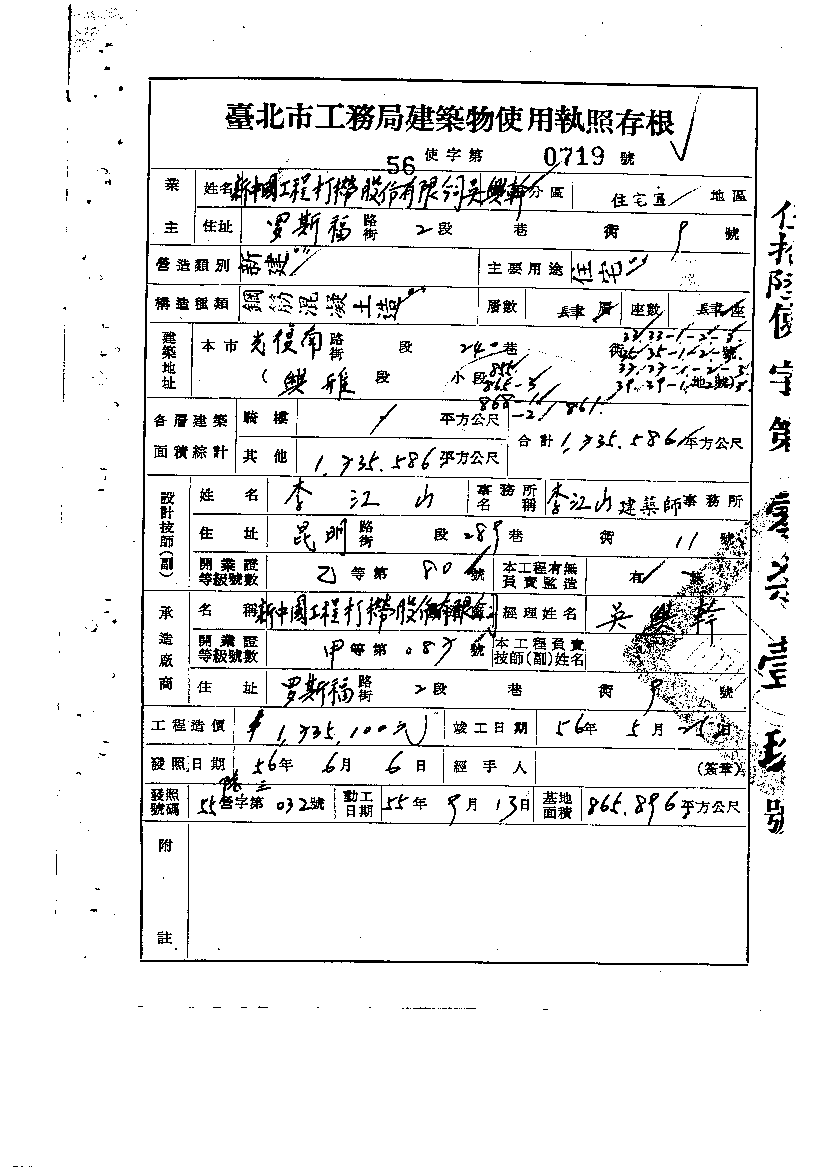 臺北市工務局建築物使用執照存根
56 使字第 0719 號
業主 姓名 新中國工程打撈股份有限公司 吳興幹 分區 住宅區 地區
住址 罗斯福 路街 2段 巷 衖 9 號
營造類別 新建 主要用途 住宅
構造種類 鋼筋混凝土造 層數 肆層 座數 肆座
建築地址 本市 光復南 路街 段 240巷 衖 33.33-1-2-3. 35.35-1-2- 號
37.37-1-2-3 39.39-1-
( 興雅 段 小段 855 865-3 868-1 -2 861. 地號)
各層建築面積綜計 騎樓 / 平方公尺 合計 1,335.586 平方公尺
其他 1,335.586 平方公尺
設計技師(副) 姓名 李江山 事務所名稱 李江山建築師事務所
住址 昆明 路街 段 289巷 衖 11 號
開業證等級號數 乙等第 80 號 本工程有無負責監造 有 無
承造廠商 名稱 新中國工程打撈股份有限公司 經理姓名 吳興幹
開業證等級號數 甲等第 號 本工程負責技師(副)姓名
住址 罗斯福 路街 2段 巷 衖 9 號
工程造價 $1,335,100元 竣工日期 56年 5月 25日
發照日期 56年 6月 6日 經手人 (簽章)
發照號碼 55營字第 032號 動工日期 55年 9月 13日 基地面積 865.896平方公尺
附註
伍拾陸使字第零柒壹玖號